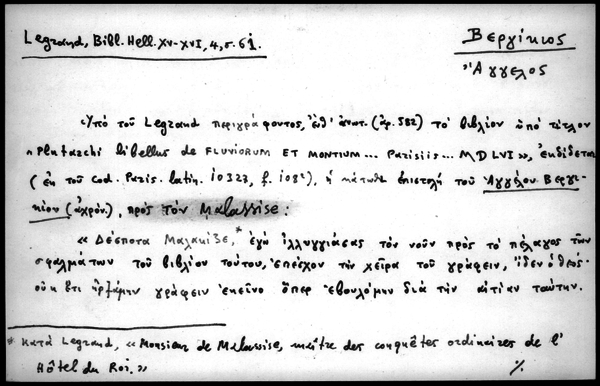 Legrand, Bibl. Hell. XV-XVI, 4, σ. 61.
Βεργίκιος
Ἄγγελος
Ὑπό τοῦ Legrand περιγράφοντος, (ἀρ. 582) τό βιβλίον ὑπό τίτλον
"Plutarchi libellus de FLUVIORUM ET MONTIUM... Parisiis... MDLVI», ἐκδίδεται
(ἐκ τοῦ Cod. Paris. latin. 10323, f. 102), ἡ κάτωθι ἐπιστολή τοῦ Ἀγγέλου Βεργι-
κίου (ἀχρόν.), πρός τόν Malassise:
« Δέσποτα Μαλασίζε,* ἐγώ ἰλλιγγιάσας τόν νοῦν πρός τό πέλαγος τῶν
σφαλμάτων τοῦ βιβλίου τούτου, ἐπέσχον τήν χεῖρα τοῦ γράφειν,
οὐκ ἔτι ἠρξάμην γράφειν ἐκεῖνο ὅπερ ἐβουλόμην διά τήν αἰτίαν ταύτην.
* Κατά Legrand, « Monsieur de Malassise, maître des conquêtes ordinaires de l'
Hôtel du Roi.»
./.